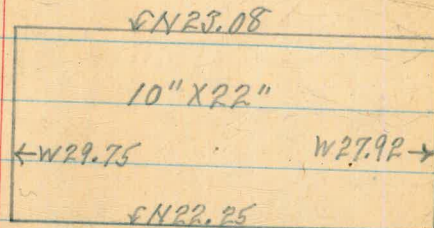 ↙N23.08
10" X 22"
←W29.75 W27.92→
↙N22.25